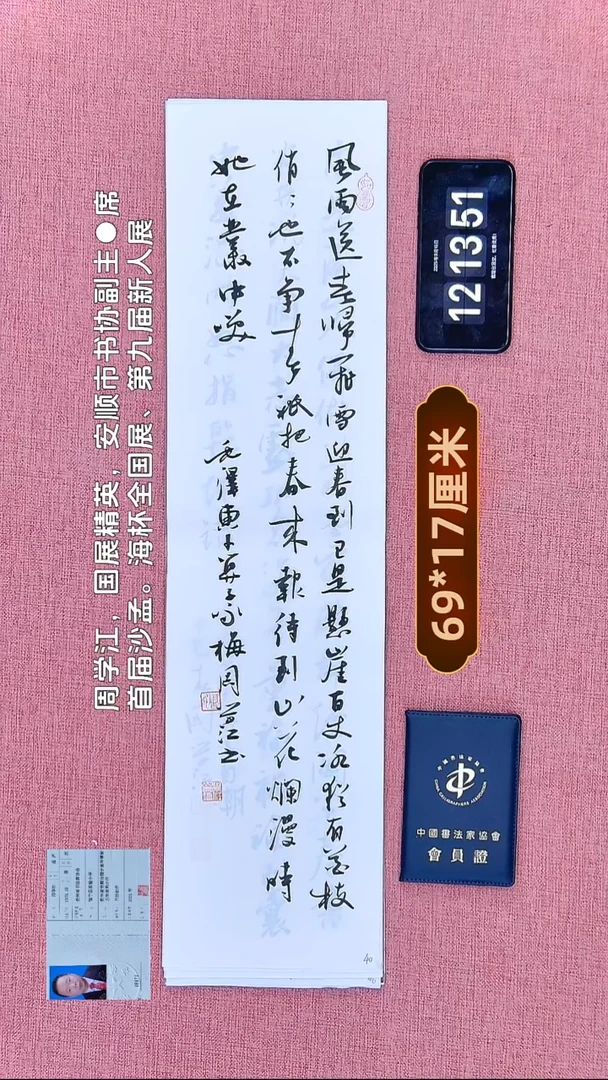 風雨送春歸飛雪迎春到已是懸崖百丈冰猶有花枝
俏〻也不争春祇把春來報待到山花爛漫時
她在叢中笑
毛澤東卜算子詠梅周學江書
40
周学江，国展精英，安顺市书协副主●席
首届沙孟。海杯全国展、第九届新人展
12 13 51
69*17厘米
中國書法家協會
會員證